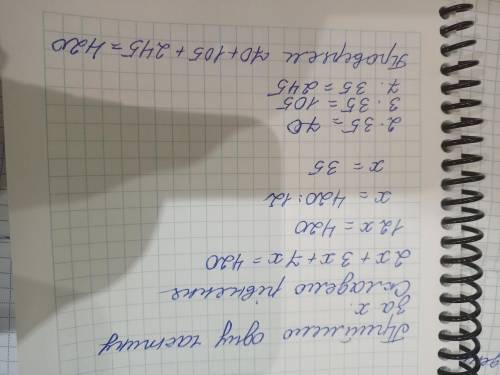 Приймемо одну частину
за x.
Складемо рівнення
2x + 3x + 7x = 420
12x = 420
x = 420:12
x = 35
2·35 = 70
3·35 = 105
7·35 = 245
Провержем 70+105+245=420